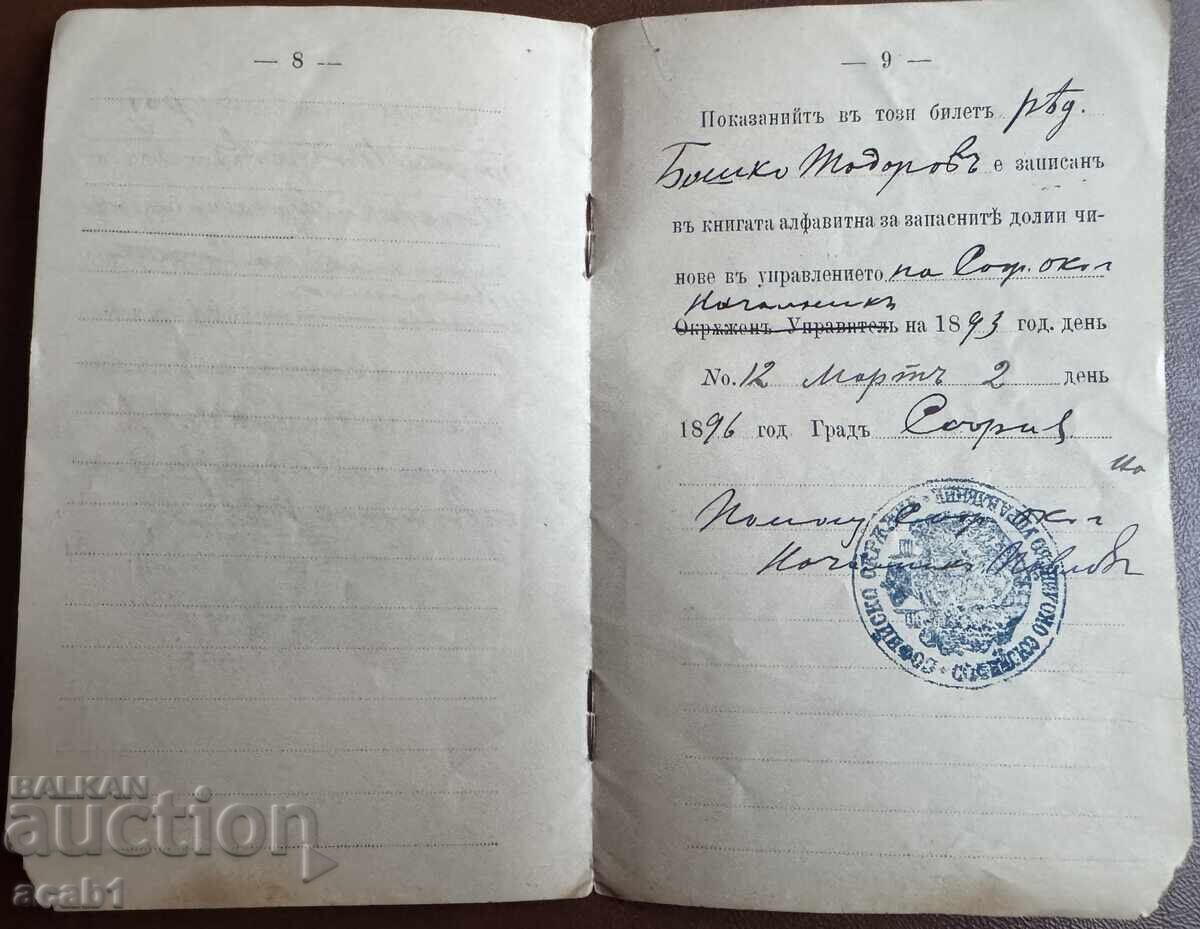 — 8 —
— 9 —
Показанийтъ въ този билетъ рѣд.
Бошко Тодоровъ е записанъ
въ книгата алфавитна за запаснитѣ долни чи-
нове въ управлението на Соф. окол
Началникъ
Окрѫженъ Управитель на 1893 год. день
No. 12 Мартъ 2 день
1896 год Градъ София
Соф окол
Началникъ
СОФИЙСКО
BALKAN
auction
acab1